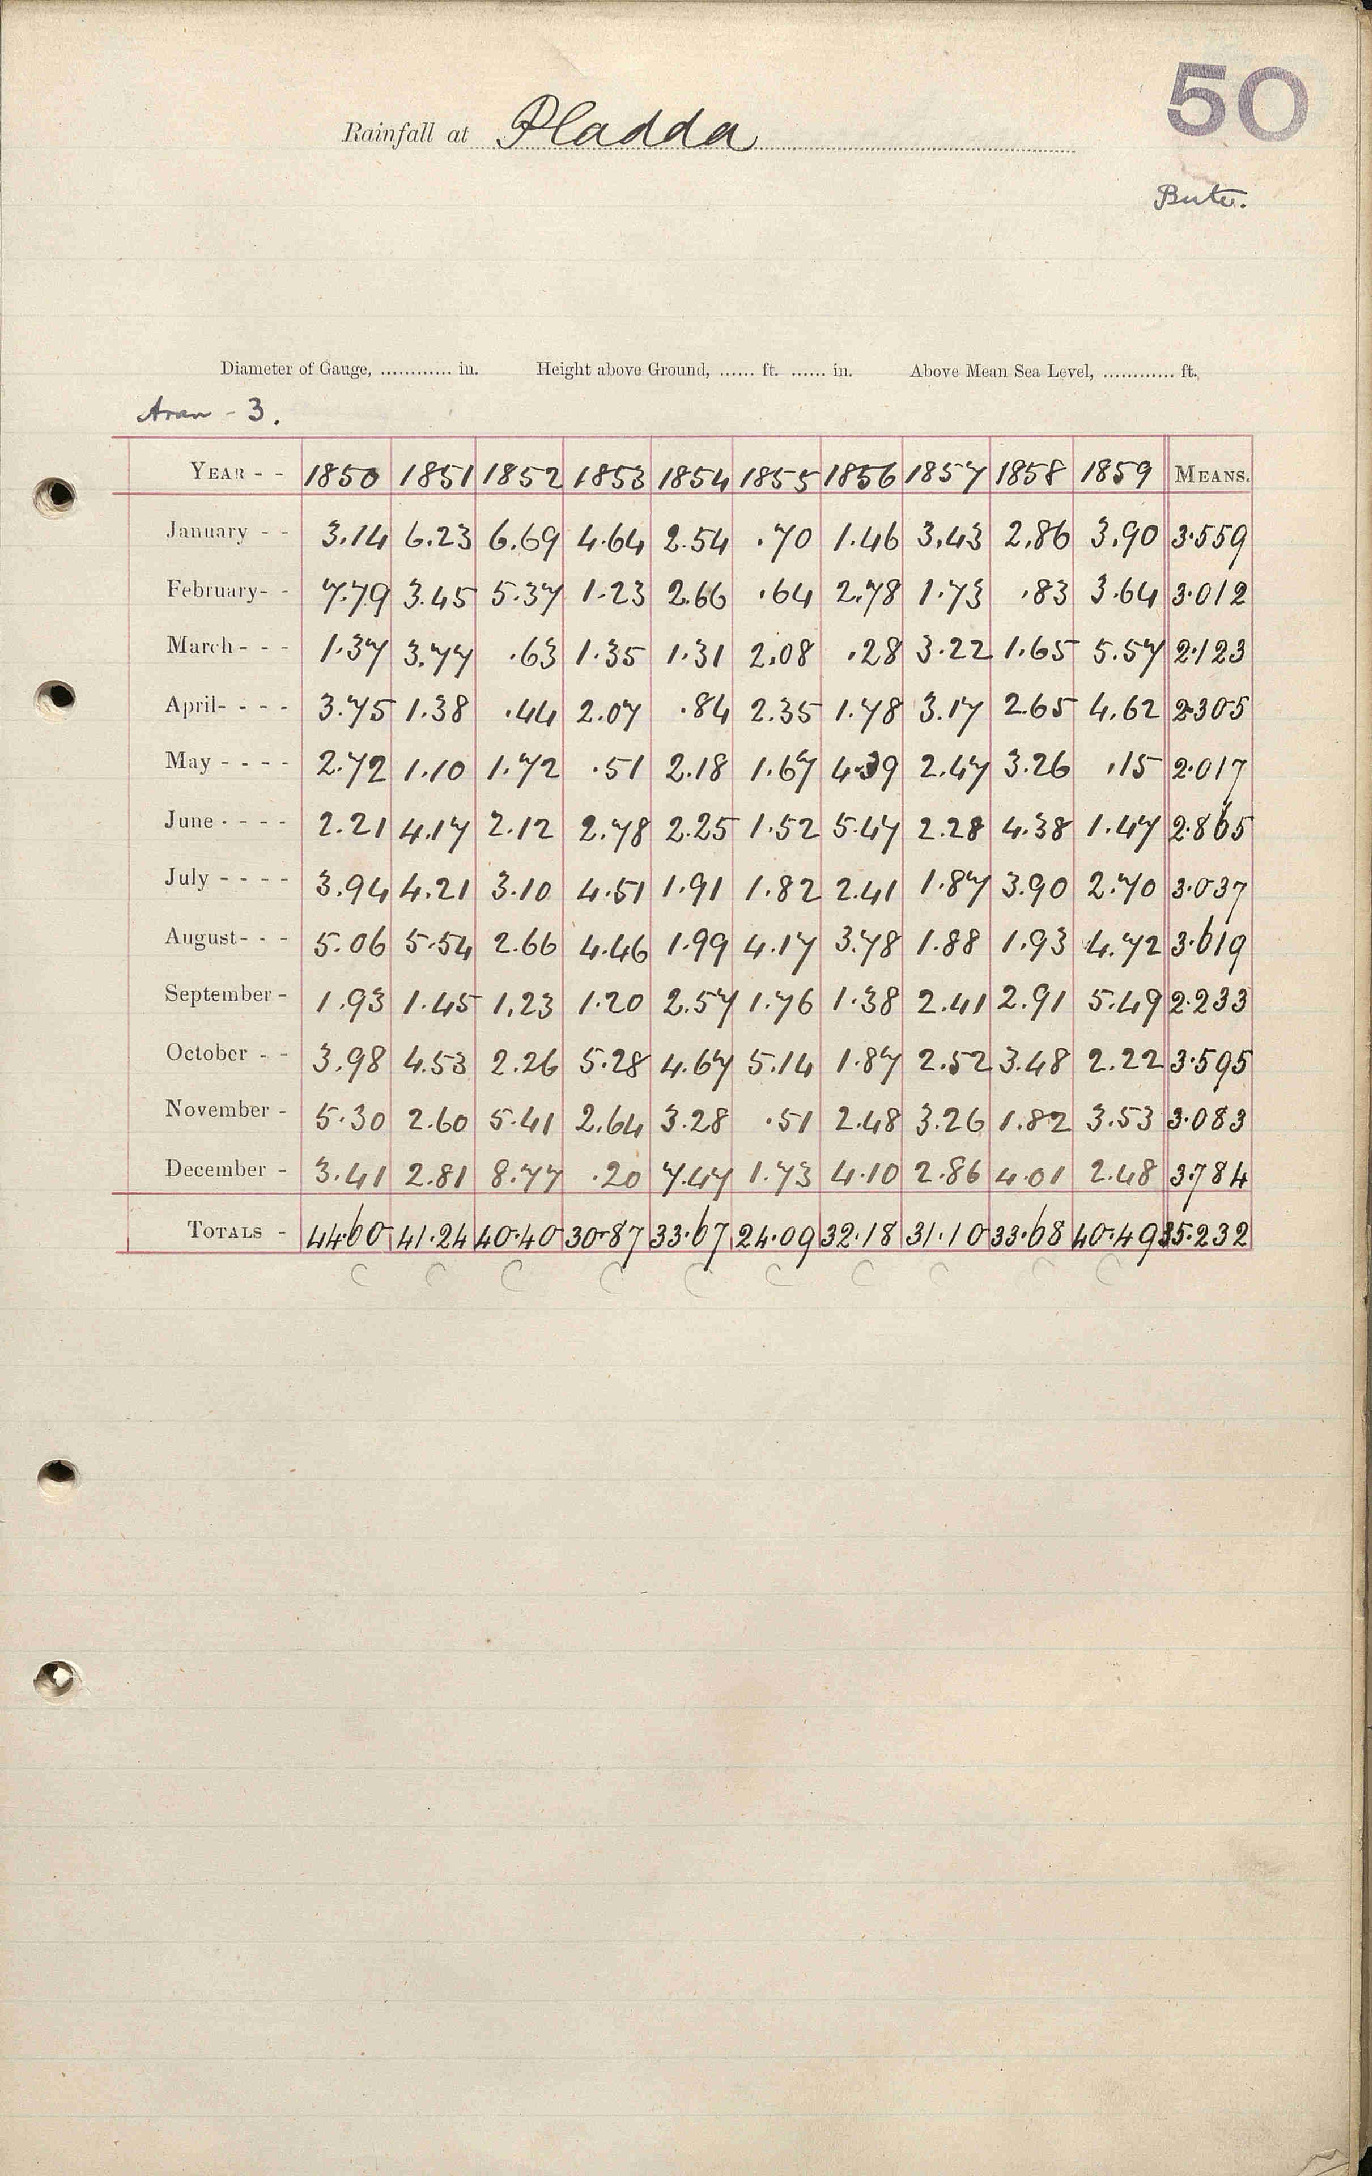 50
Rainfall at Pladda
Bute.
Diameter of Gauge, ............ in. Height above Ground, ...... ft. ...... in. Above Mean Sea Level, ............ ft.
Aran - 3.
YEAR - - 1850 1851 1852 1853 1854 1855 1856 1857 1858 1859 MEANS.
January - - 3.14 6.23 6.69 4.64 2.54 .70 1.46 3.43 2.86 3.90 3.559
February- - 7.79 3.45 5.37 1.23 2.66 .64 2.78 1.73 .83 3.64 3.012
March - - - 1.37 3.77 .63 1.35 1.31 2.08 .28 3.22 1.65 5.57 2.123
April- - - - 3.75 1.38 .44 2.07 .84 2.35 1.78 3.17 2.65 4.62 2.305
May - - - - 2.72 1.10 1.72 .51 2.18 1.67 4.39 2.47 3.26 .15 2.017
June - - - - 2.21 4.17 2.12 2.78 2.25 1.52 5.47 2.28 4.38 1.47 2.865
July - - - - 3.94 4.21 3.10 4.51 1.91 1.82 2.41 1.87 3.90 2.70 3.037
August- - - 5.06 5.54 2.66 4.46 1.99 4.17 3.78 1.88 1.93 4.72 3.619
September - 1.93 1.45 1.23 1.20 2.57 1.76 1.38 2.41 2.91 5.49 2.233
October - - 3.98 4.53 2.26 5.28 4.67 5.14 1.87 2.52 3.48 2.22 3.595
November - 5.30 2.60 5.41 2.64 3.28 .51 2.48 3.26 1.82 3.53 3.083
December - 3.41 2.81 8.77 .20 7.47 1.73 4.10 2.86 4.01 2.48 3.784
TOTALS - 44.60 41.24 40.40 30.87 33.67 24.09 32.18 31.10 33.68 40.49 35.232
C C C C C C C C C C